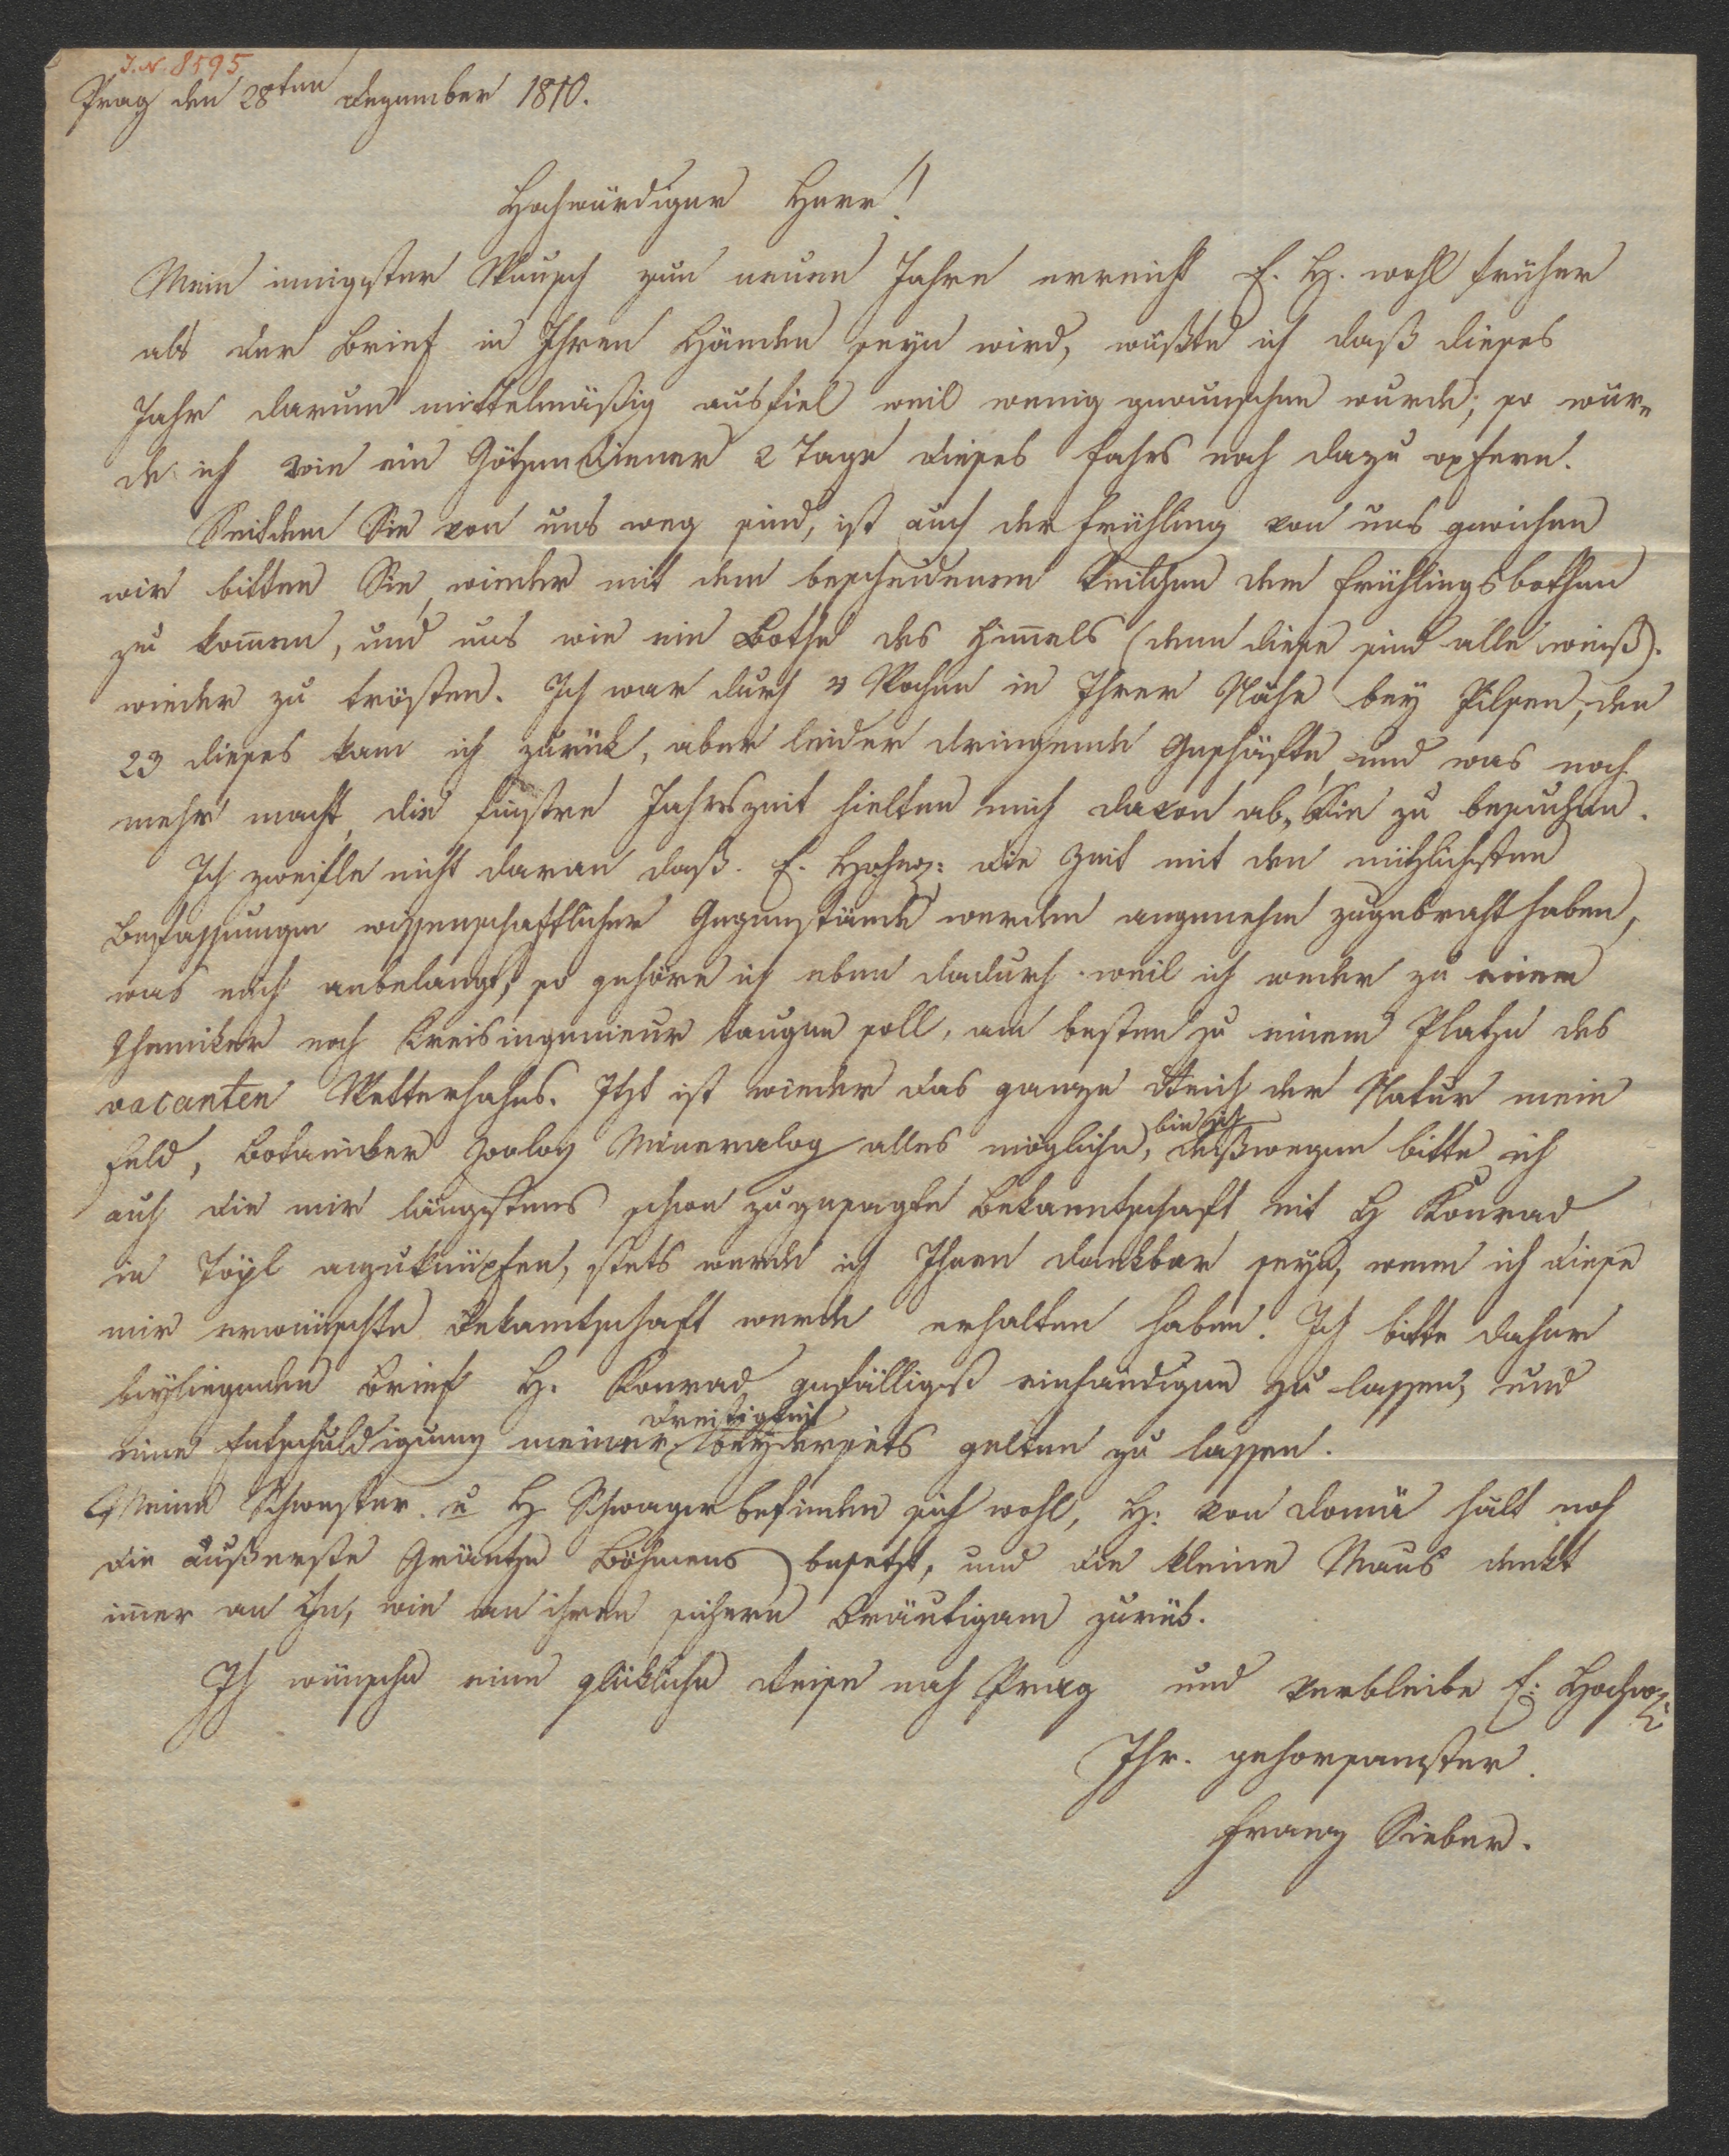 J. N. 8595
Prag den 28ten Dezember 1810.
Hochwürdiger Herr!
Mein innigster Wunsch zum neuen Jahre erreicht E. H. wohl früher
als der Brief in Ihren Händen seyn wird, wüßte ich daß dieses
Jahr darum mittelmäßig ausfiel weil wenig gewunschen wurde; so wür-
de ich wie ein Götzendiener 2 Tage dieses Jahrs noch dazu opfern.
Seitdem Sie von uns weg sind, ist auch der Frühling von uns gewichen
wir bitten Sie wieder mit dem bescheidenen Veilchen dem Frühlingsbothen
zu kom̄en, und uns wie ein Bothe des Him̄els (denn diese sind alle weiß).
wieder zu trösten. Ich war durch 3 Wochen in Ihrer Nähe bey Pilsen, den
23 dieses kam ich zurük, aber leider dringende Geschäfte und was noch
mehr macht, die finstre Jahrszeit hielten mich davon ab, Sie zu besuchen.
Ich zweifle nicht daran daß E. Hochw: die Zeit mit den nützlichsten
Befassungen wissenschaftlicher Gegenstände werden angenehm zugebracht haben,
was mich anbelangt, so gehöre ich eben dadurch weil ich weder zu einem
Chemiker noch Kreisingenieur taugen soll, am besten zu einem Platze des
vacanten Wetterhahns. Itzt ist wieder das ganze Reich der Natur mein
Feld, Botaniker Zoolog Mineralog alles mögliche, bin ich deßwegen bitte ich
auch die mir längstens schon zugesagte Bekanntschaft mit H Konrad
in Töpl anzuknüpfen, stets werde ich Ihnen dankbar seyn, wenn ich diese
mir erwünschte Bekantschaft werde erhalten haben. Ich bitte daher
beyliegenden Brief H. Konrad gefälligst einhändigen zu lassen, und
eine Entschuldigung meiner Dreistigkeit beyderseits gelten zu lassen.
Meine Schwester u H Schwager befinden sich wohl, H: von hält noch
die äußerste Gräntze Böhmens besetzt, und die kleine Maus denkt
im̄er an ihn, wie an ihren sichern Bräutigam zurük.
Ich wünsche eine glückliche Reise nach Prag und verbleibe E: Hochw:
Ihr. gehorsamster
Franz Sieber.